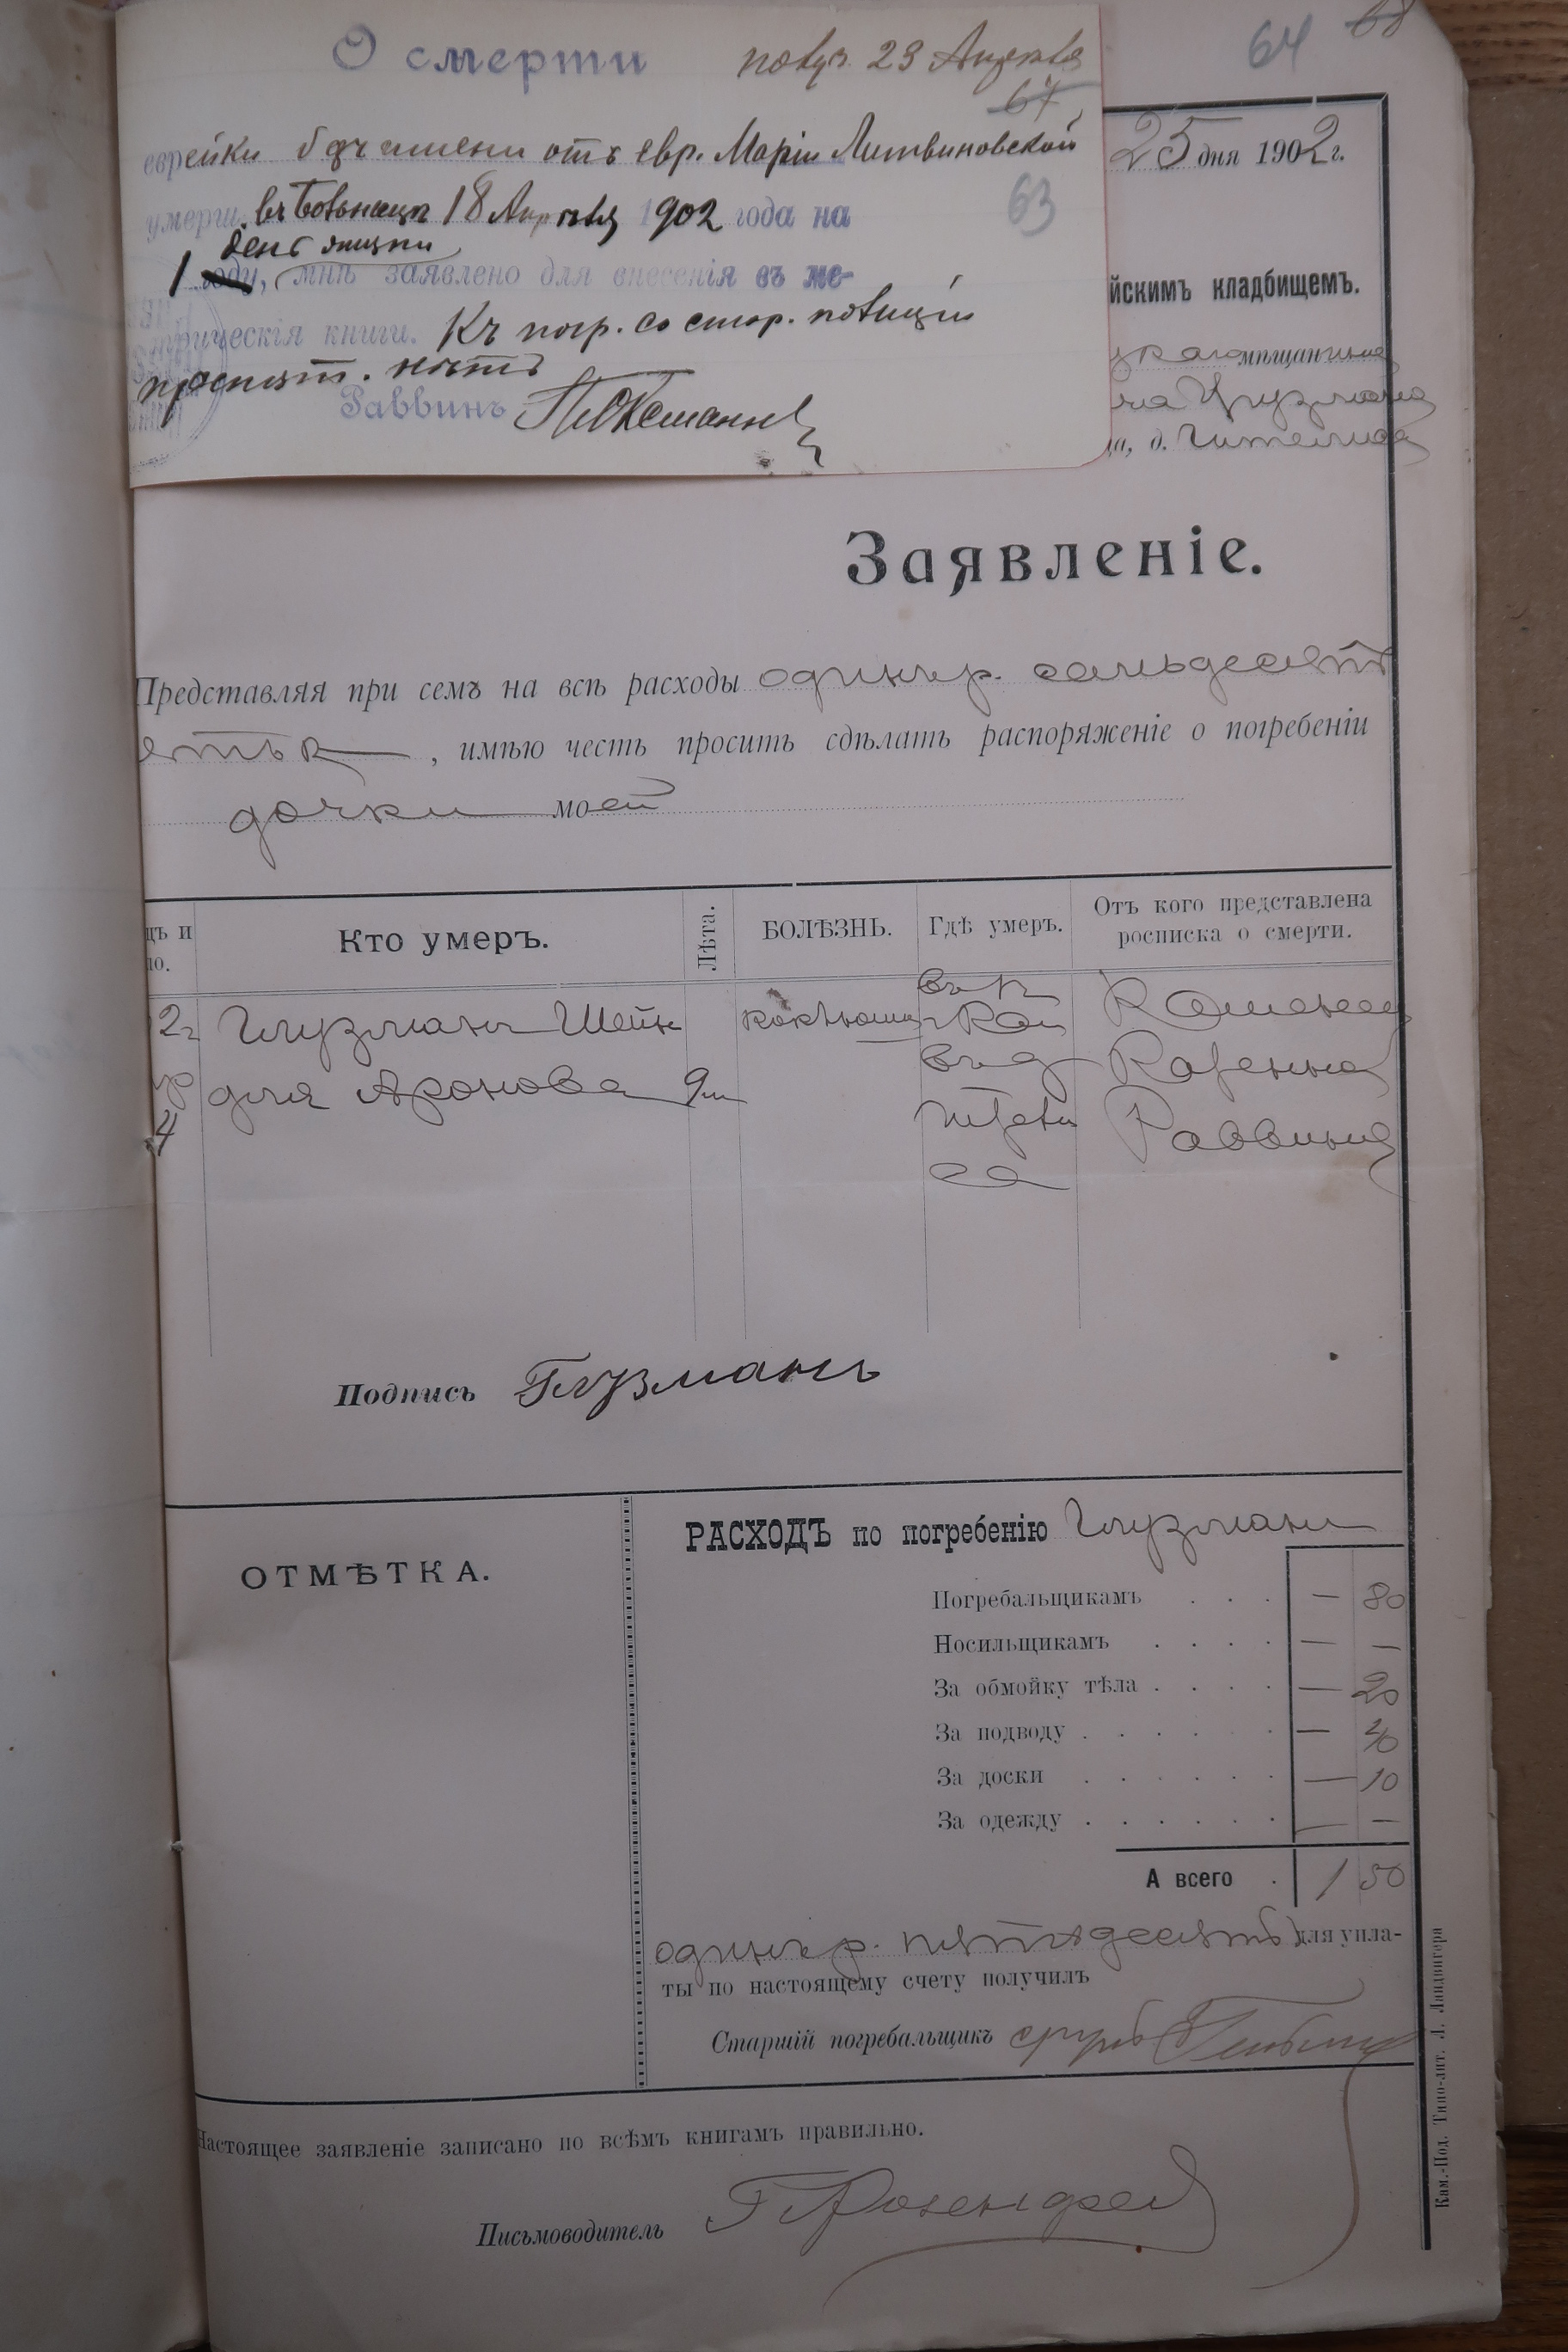 О смерти получ. 23 Апреля
64 68
67
еврейки без имени отъ евр. Маріи Литвиновской
умерш. въ больницѣ 18 Апрѣля 1902 года на
63
день жизни
1 году, мнѣ заявлено для внесенія въ ме-
трическія книги. Къ погр. со стор. полиціи
препят. нѣтъ
Раввинъ
25 дня 1902 г.
йскимъ кладбищемъ.
мѣщанина
Глузмана
а, д.
Заявленіе.
Представляя при семъ на всѣ расходы одинъ р. семьдесятъ
, имѣю честь просить сдѣлать распоряженіе о погребеніи
дочки моей
цъ и
ло.
Кто умеръ.
Лѣта.
БОЛѢЗНЬ.
Гдѣ умеръ.
Отъ кого представлена
росписка о смерти.
2 г Глузманъ Шейн
коклюшъ
въ г. Кам
Каменец
р
для Аронова 9 м
Казенна
4
Раввина
Подпись Глузманъ
ОТМѢТКА.
РАСХОДЪ по погребенію Глузманъ
Погребальщикамъ . . . — 80
Носильщикамъ . . . . — —
За обмойку тѣла . . . . — 20
За подводу . . . . . . — 40
За доски . . . . . . — 10
За одежду . . . . . . — —
А всего . 1 50
одинъ р. пятьдесятъ для упла-
ты по настоящему счету получилъ
Старшій погребальщикъ
Настоящее заявленіе записано по всѣмъ книгамъ правильно.
Письмоводитель Розенфел
Кам.-Под. Типо-лит. Л. Ландвигера